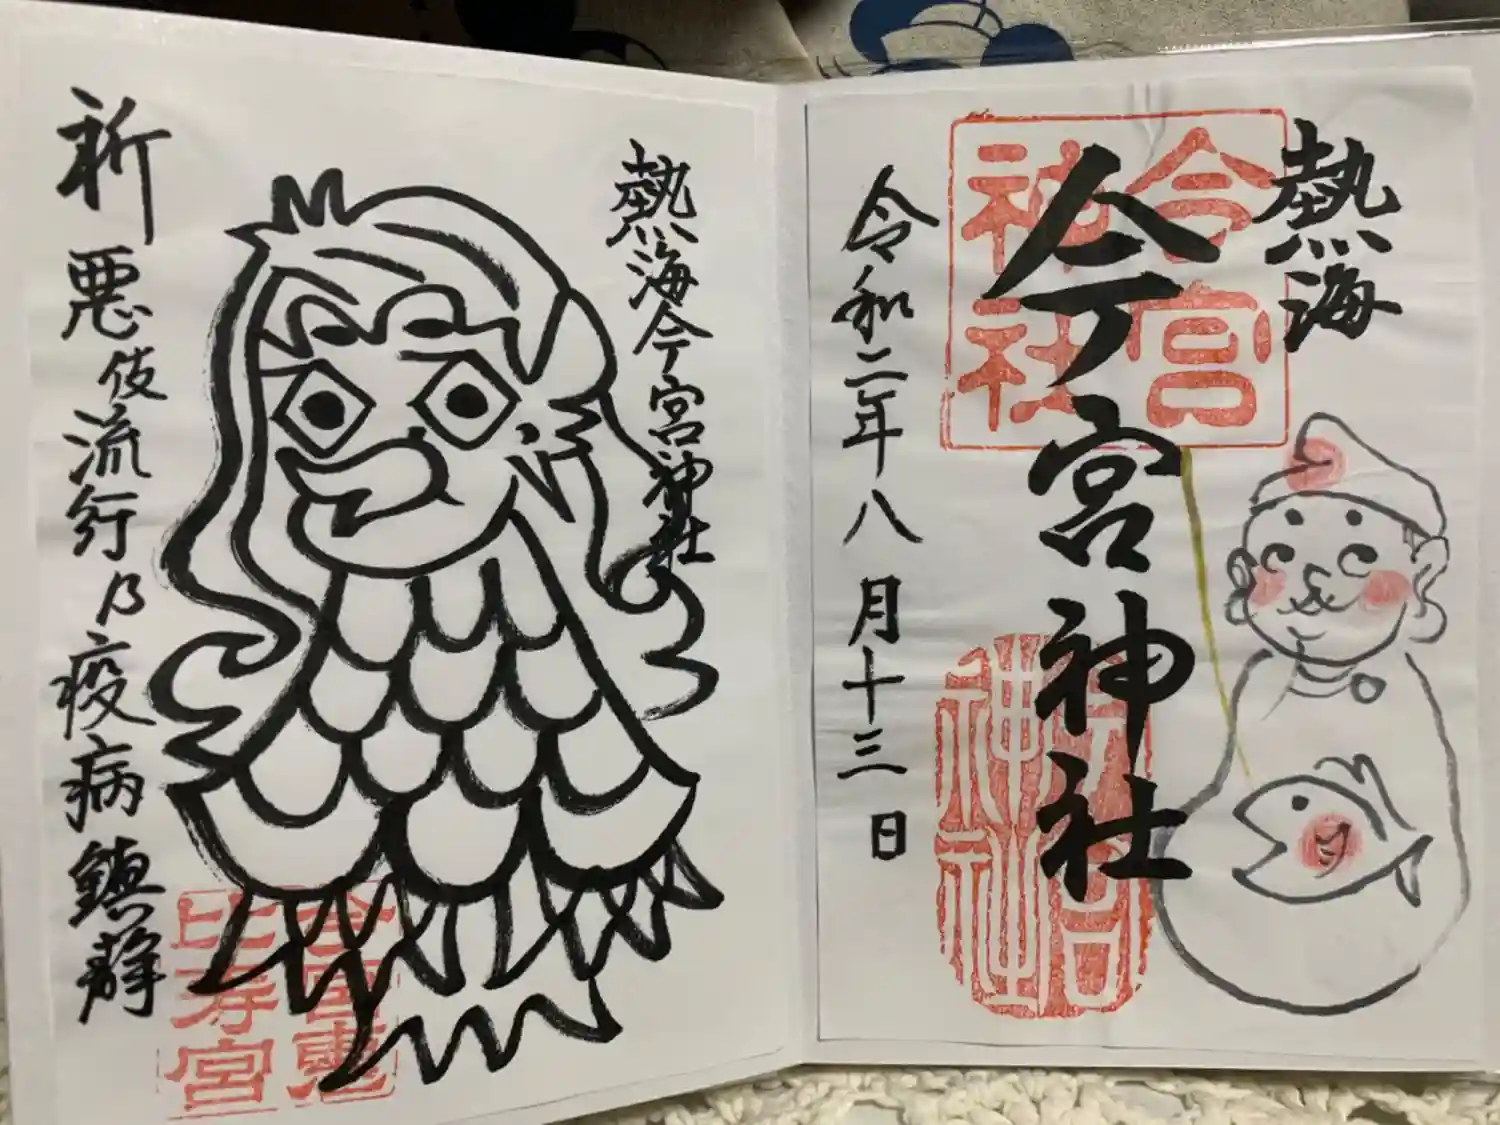 熱海
今宮神社
令和二年八月十三日
今宮神社
熱海今宮神社
祈 悪疫流行乃疫病鎮静